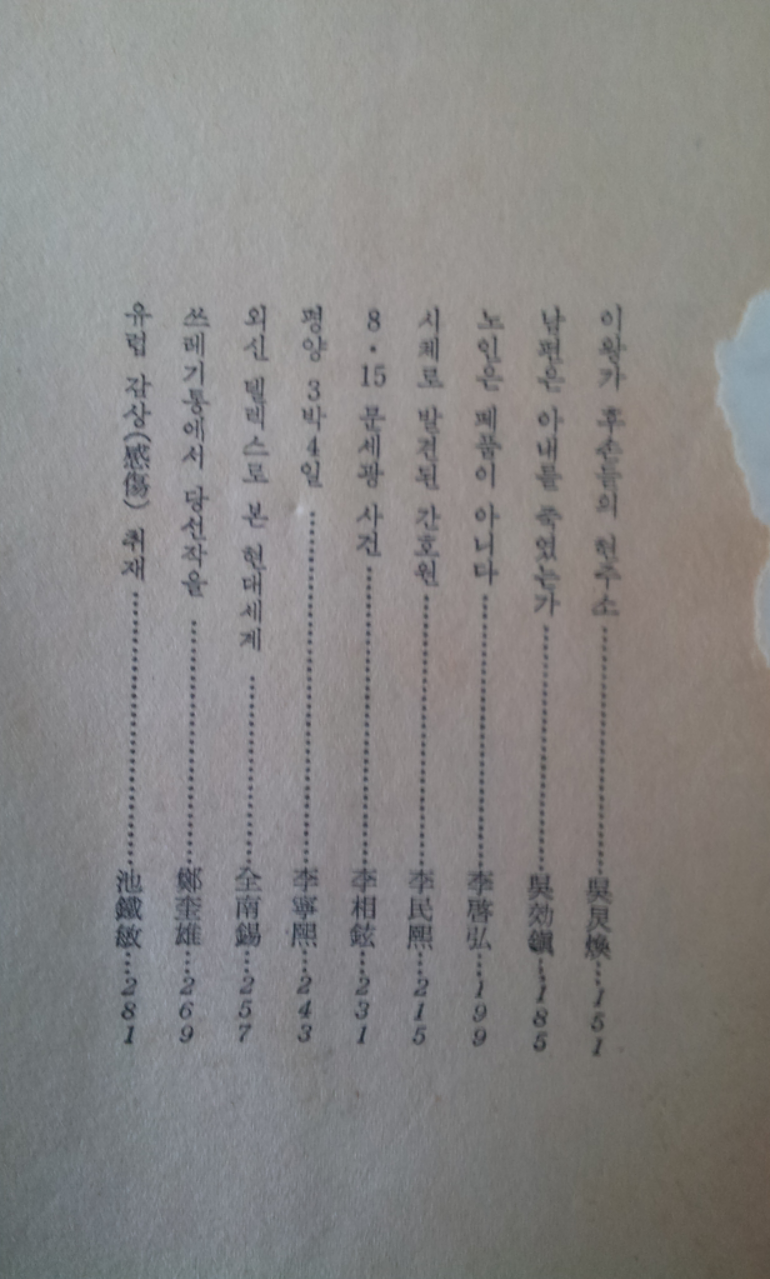 이왕가 후손들의 현주소……吳炅煥…151
남편은 아내를 죽였는가……吳効鎭…185
노인은 폐품이 아니다……李啓弘…199
시체로 발견된 간호원……李民熙…215
8·15 문세광 사건……李相鉉…231
평양 3박4일……李寧熙…243
외신 텔렉스로 본 현대세계……全南錫…257
쓰레기통에서 당선작을……鄭奎雄…269
유럽 감상(感傷) 취재……池鐵敏…281